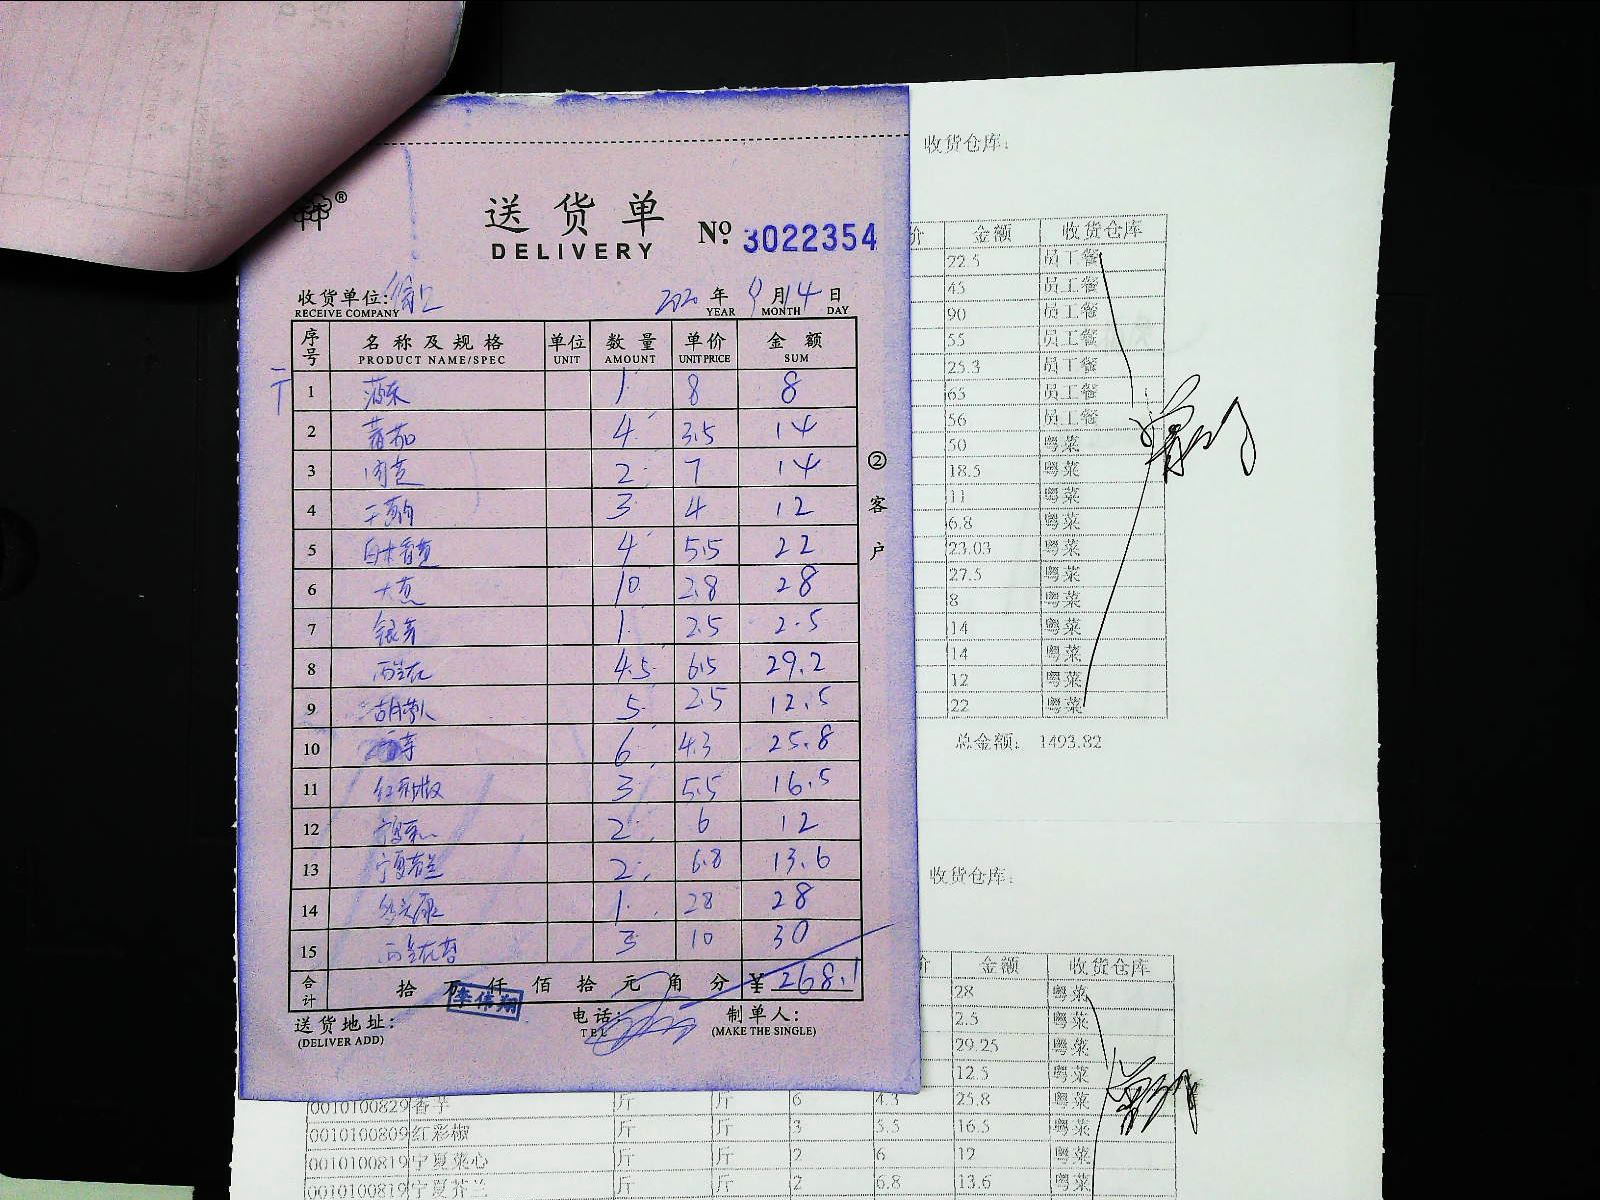 送货单
DELIVERY
№ 3022354
收货单位:
RECEIVE COMPANY
2020 年 9 月 14 日
YEAR MONTH DAY
序号 名称及规格 单位 数量 单价 金额
PRODUCT NAME/SPEC UNIT AMOUNT UNIT PRICE SUM
1 1 8 8
2 番茄 4 3.5 14
3 2 7 14
4 3 4 12
5 4 5.5 22
6 大葱 10 2.8 28
7 银芽 1 2.5 2.5
8 西兰花 4.5 6.5 29.2
9 胡萝卜 5 2.5 12.5
10 6 4.3 25.8
11 红彩椒 3 5.5 16.5
12 2 6 12
13 宁夏芥兰 2 6.8 13.6
14 1 28 28
15 3 10 30
合计 拾 万 仟 佰 拾 元 角 分 ¥268.1
李伟翔
送货地址:
(DELIVER ADD)
电话:
TEL
制单人:
(MAKE THE SINGLE)
②客户
收货仓库:
价 金额 收货仓库
22.5 员工餐
45 员工餐
90 员工餐
55 员工餐
25.3 员工餐
65 员工餐
56 员工餐
50 粤菜
18.5 粤菜
11 粤菜
6.8 粤菜
23.03 粤菜
27.5 粤菜
8 粤菜
14 粤菜
14 粤菜
12 粤菜
22 粤菜
总金额: 1493.82
收货仓库:
价 金额 收货仓库
28 粤菜
2.5 粤菜
29.25 粤菜
12.5 粤菜
0010100829 香芋 斤 斤 6 4.3 25.8 粤菜
0010100809 红彩椒 斤 斤 3 5.5 16.5 粤菜
0010100819 宁夏菜心 斤 斤 2 6 12 粤菜
0010100819 宁夏芥兰 斤 斤 2 6.8 13.6 粤菜